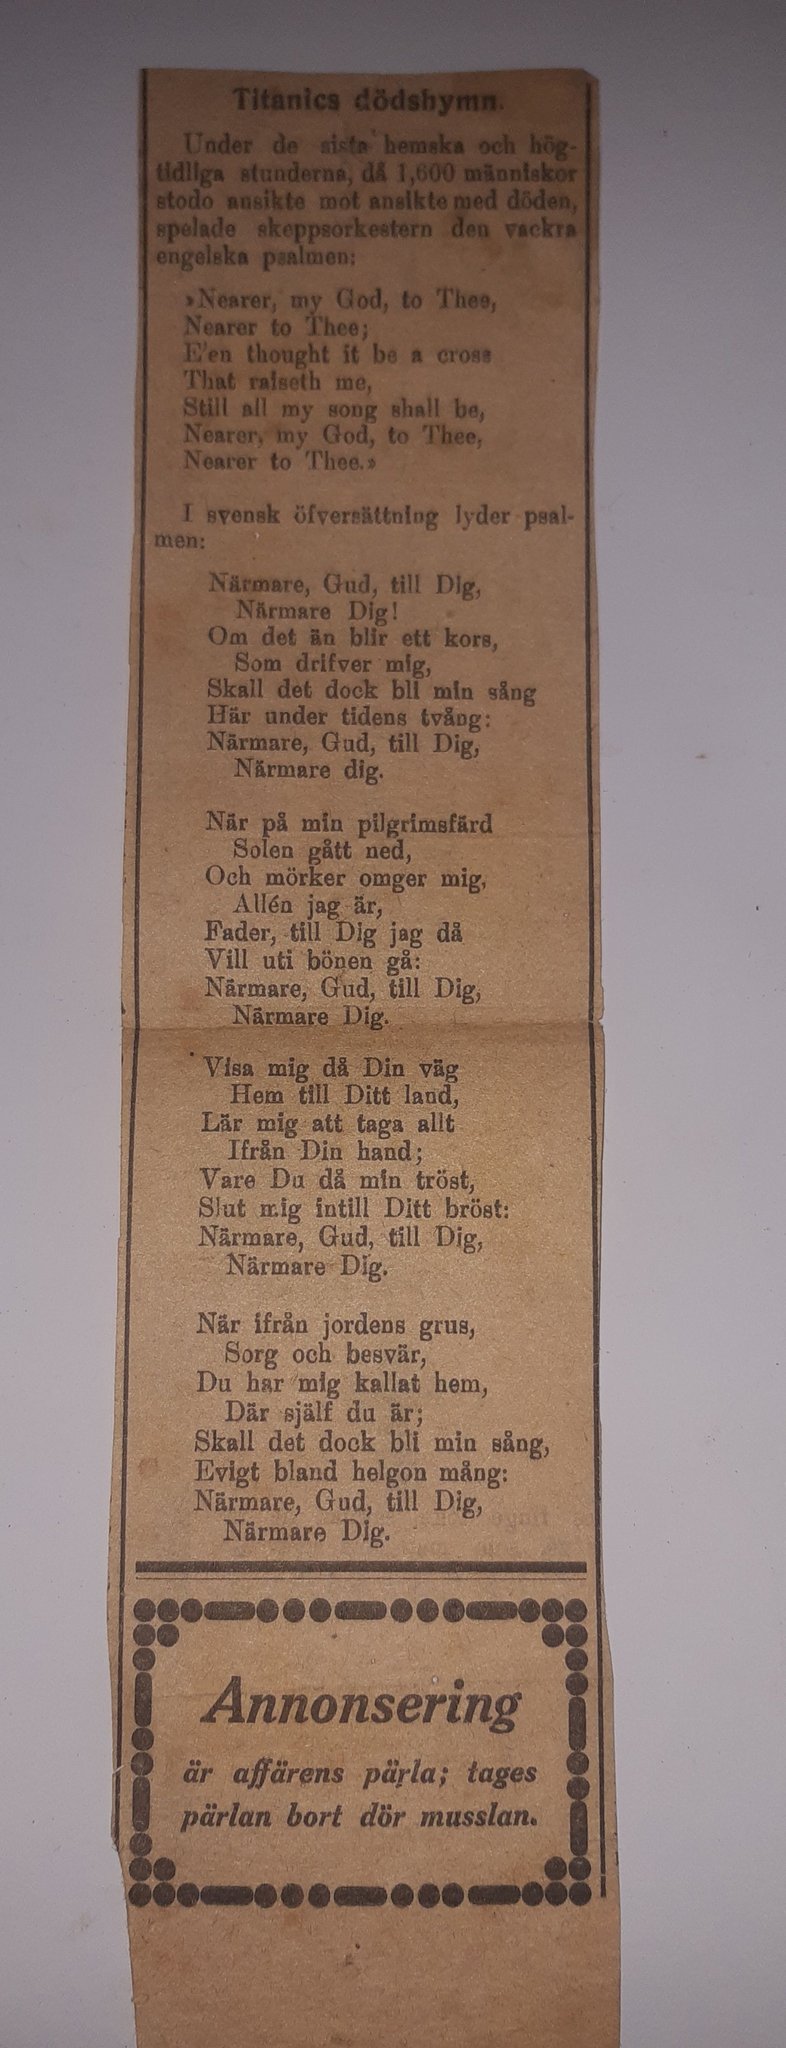 Titanics dödshymn.
Under de sista hemska och hög-
tidliga stunderna, då 1,600 människor
stodo ansikte mot ansikte med döden,
spelade skeppsorkestern den vackra
engelska psalmen:
»Nearer, my God, to Thee,
Nearer to Thee;
E'en thought it be a cross
That raiseth me,
Still all my song shall be,
Nearer, my God, to Thee,
Nearer to Thee.»
I svensk öfversättning lyder psal-
men:
Närmare, Gud, till Dig,
Närmare Dig!
Om det än blir ett kors,
Som drifver mig,
Skall det dock bli min sång
Här under tidens tvång:
Närmare, Gud, till Dig,
Närmare dig.
När på min pilgrimsfärd
Solen gått ned,
Och mörker omger mig,
Allén jag är,
Fader, till Dig jag då
Vill uti bönen gå:
Närmare, Gud, till Dig,
Närmare Dig.
Visa mig då Din väg
Hem till Ditt land,
Lär mig att taga allt
Ifrån Din hand;
Vare Du då min tröst,
Slut mig intill Ditt bröst:
Närmare, Gud, till Dig,
Närmare Dig.
När ifrån jordens grus,
Sorg och besvär,
Du har mig kallat hem,
Där själf du är;
Skall det dock bli min sång,
Evigt bland helgon mång:
Närmare, Gud, till Dig,
Närmare Dig.
Annonsering
är affärens pärla; tages
pärlan bort dör musslan.